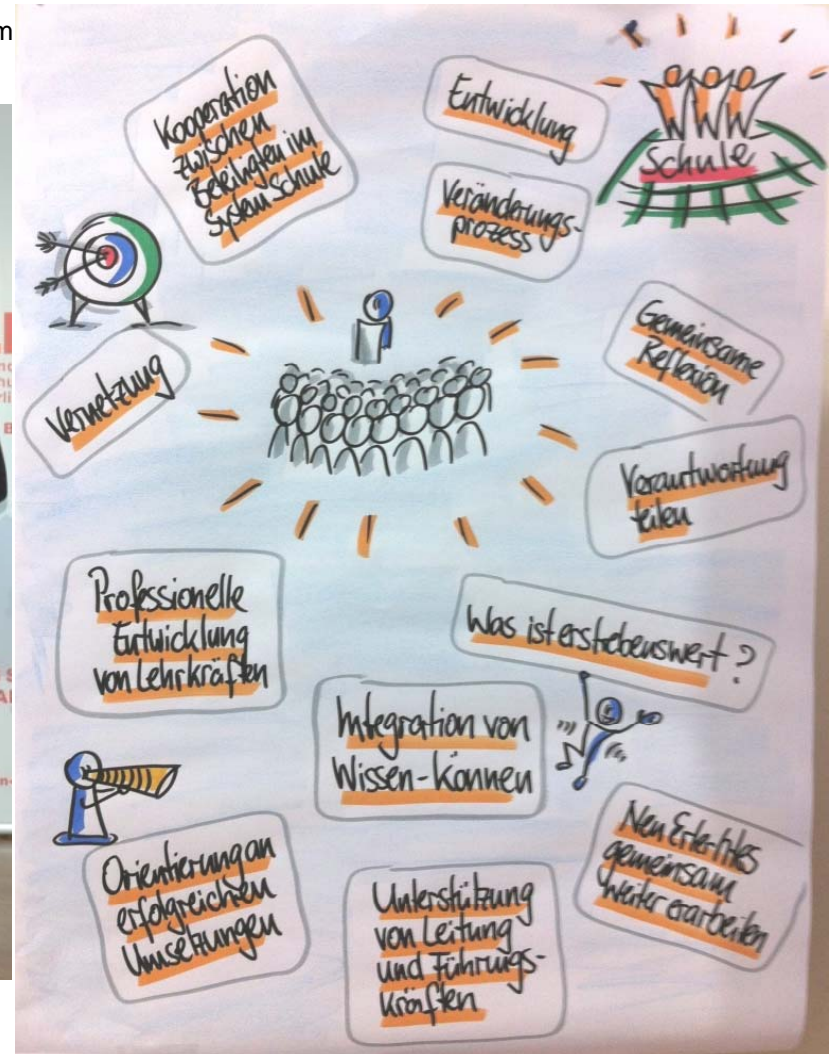 Kooperation
zwischen
Beteiligten im
System Schule
Entwicklung
Veränderungs-
prozess
Schule
Vernetzung
Gemeinsame
Reflexion
Verantwortung
teilen
Professionelle
Entwicklung
von Lehrkräften
Was ist erstrebenswert?
Integration von
Wissen-Können
Orientierung an
erfolgreichen
Umsetzungen
Unterstützung
von Leitung
und Führungs-
kräften
gemeinsam
weiter erarbeiten